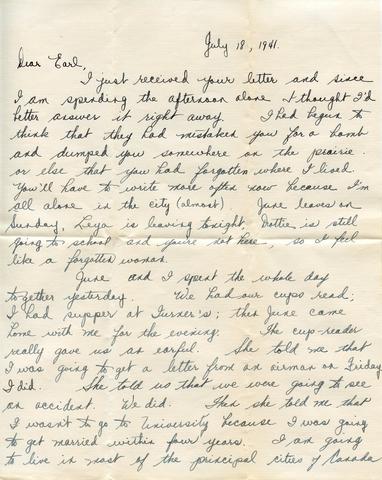 July 18, 1941.
Dear Earl,
I just received your letter and since
I am spending the afternoon alone I thought I'd
better answer it right away. I had begun to
think that they had mistaken you for a bomb
and dumped you somewhere on the prairie
or else that you had forgotten where I lived.
You'll have to write more often now because I'm
all alone in the city (almost) June leaves on
Sunday, Leya is leaving tonight, Dottie is still
going to school and you're not here, so I feel
like a forgotten woman.
June and I spent the whole day
together yesterday. We had our cups read;
I had supper at Turner's; then June came
home with me for the evening. The cup-reader
really gave us an earful. She told me that
I was going to get a letter from an airman on Friday
I did. She told us that we were going to see
an accident. We did. Then she told me that
I wasn't to go to University because I was going
to get married within four years. I am going
to live in most of the principal cities of Canada